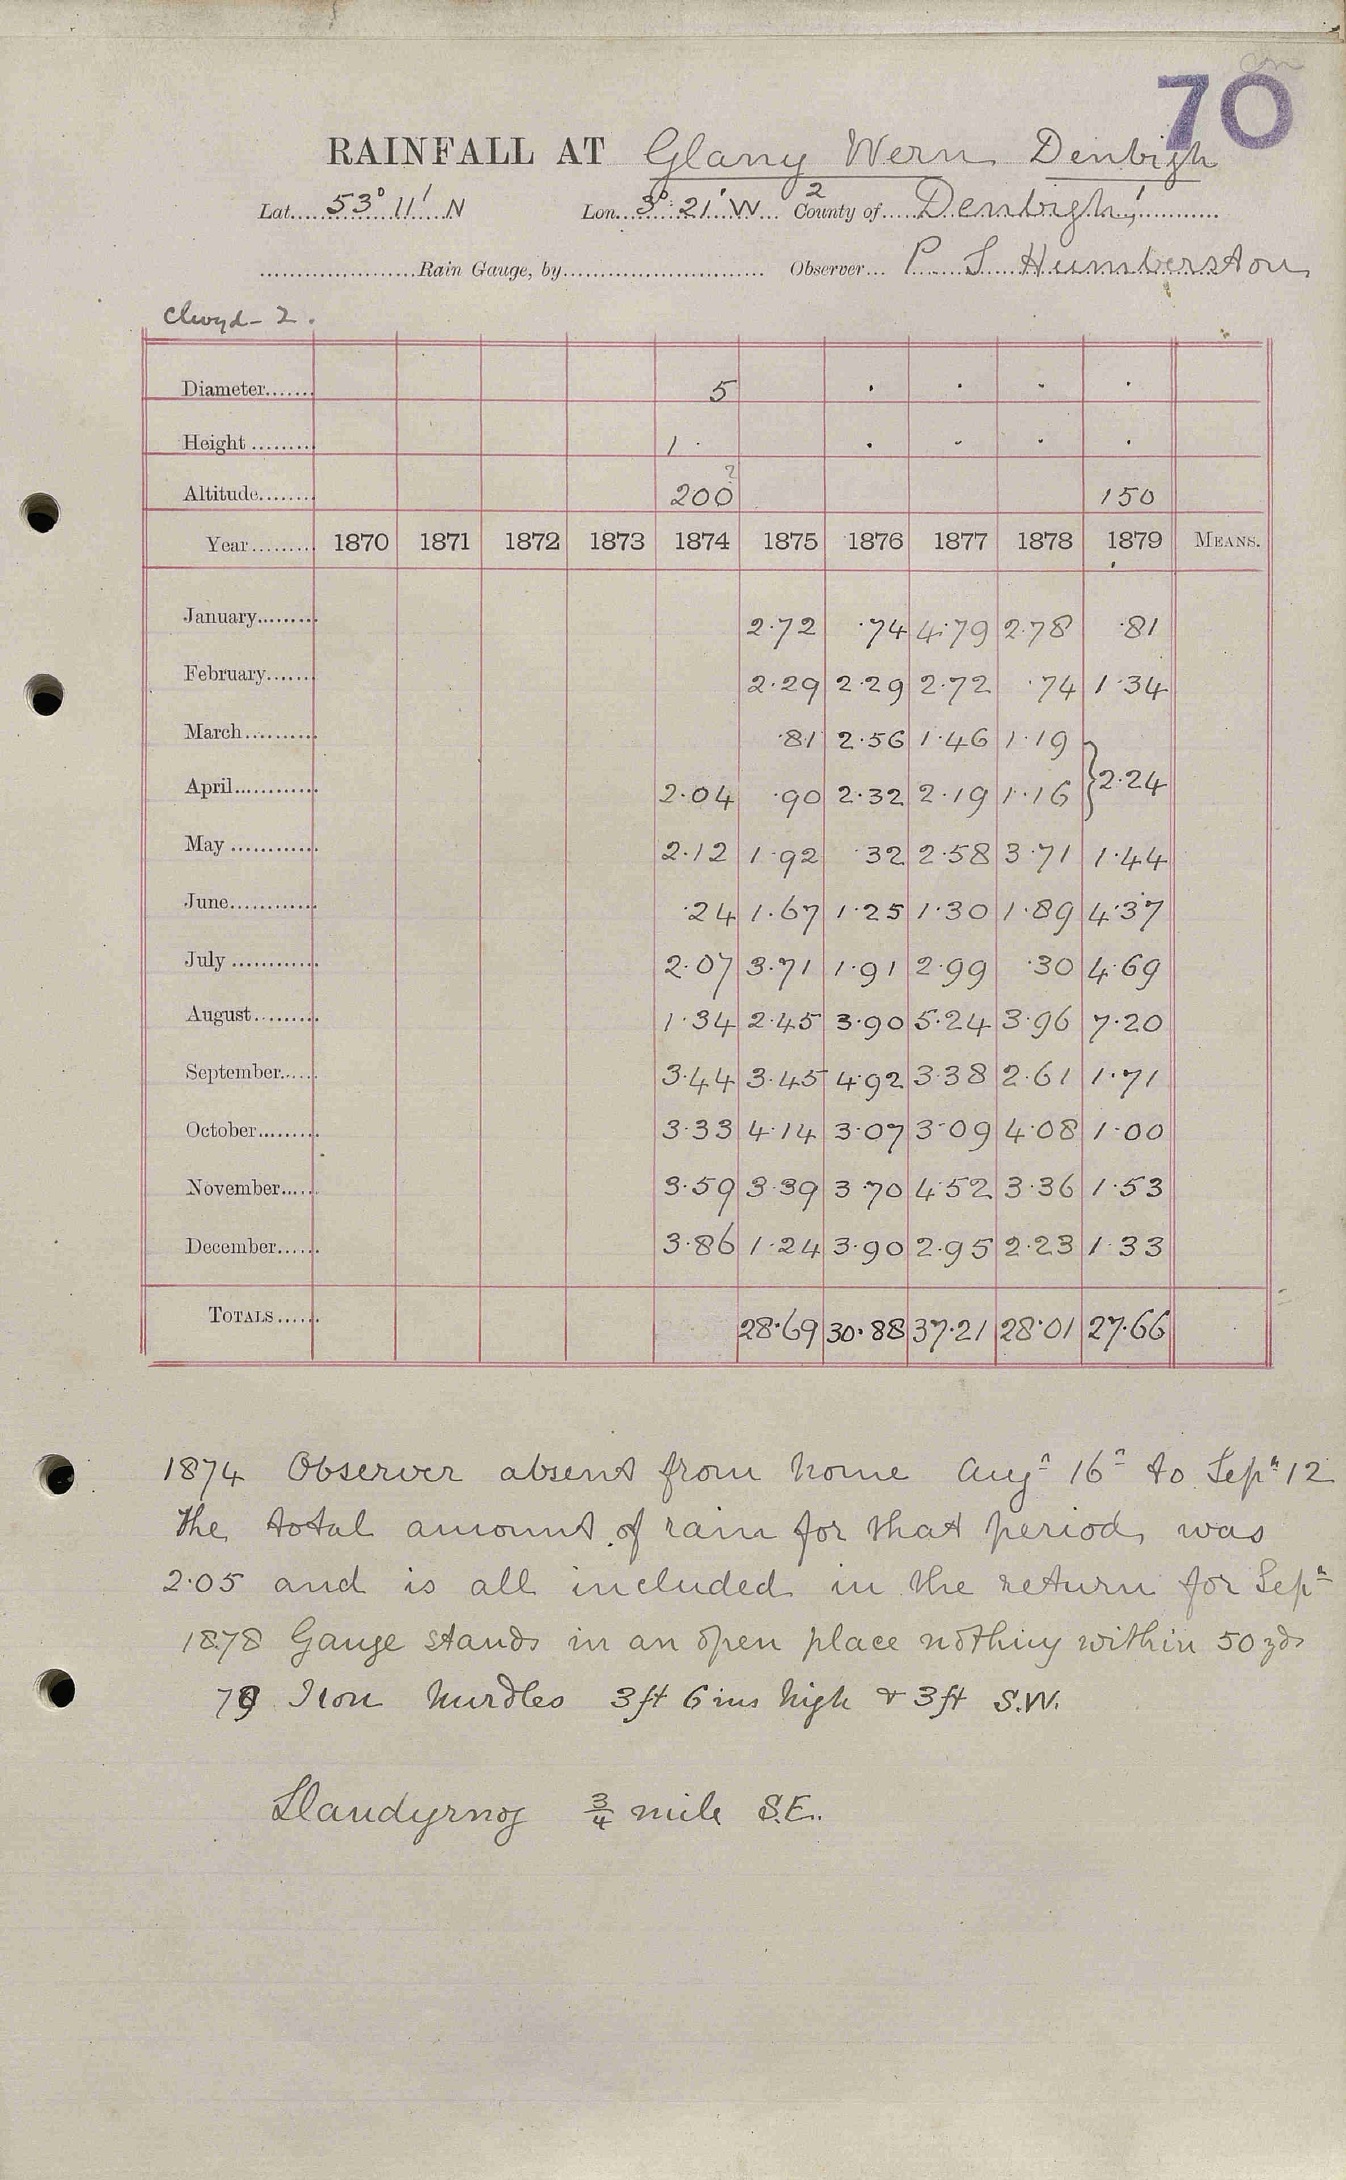 70
RAINFALL AT Glany Wern Denbigh
Lat. 53° 11' N Lon. 3° 21' W 2 County of Denbigh
Rain Gauge, by Observer P S Humberston
Clwyd - 2.
Diameter 5 · · · ·
Height 1 · · · · ·
Altitude 200? 150
Year 1870 1871 1872 1873 1874 1875 1876 1877 1878 1879 MEANS.
January 2.72 .74 4.79 2.78 .81
February 2.29 2.29 2.72 .74 1.34
March .81 2.56 1.46 1.19
April 2.04 .90 2.32 2.19 1.16 } 2.24
May 2.12 1.92 .32 2.58 3.71 1.44
June .24 1.67 1.25 1.30 1.89 4.37
July 2.07 3.71 1.91 2.99 .30 4.69
August 1.34 2.45 3.90 5.24 3.96 7.20
September 3.44 3.45 4.92 3.38 2.61 1.71
October 3.33 4.14 3.07 3.09 4.08 1.00
November 3.59 3.39 3.70 4.52 3.36 1.53
December 3.86 1.24 3.90 2.95 2.23 1.33
TOTALS 28.69 30.88 37.21 28.01 27.66
1874 Observer absent from home Augr 16r to Sepr 12
the total amount of rain for that period, was
2.05 and is all included in the return for Sepr
1878 Gauge stands in an open place nothing within 50 yds
79 Iron hurdles 3 ft 6 ins high & 3 ft S.W.
Llandyrnog 3/4 mile S.E.